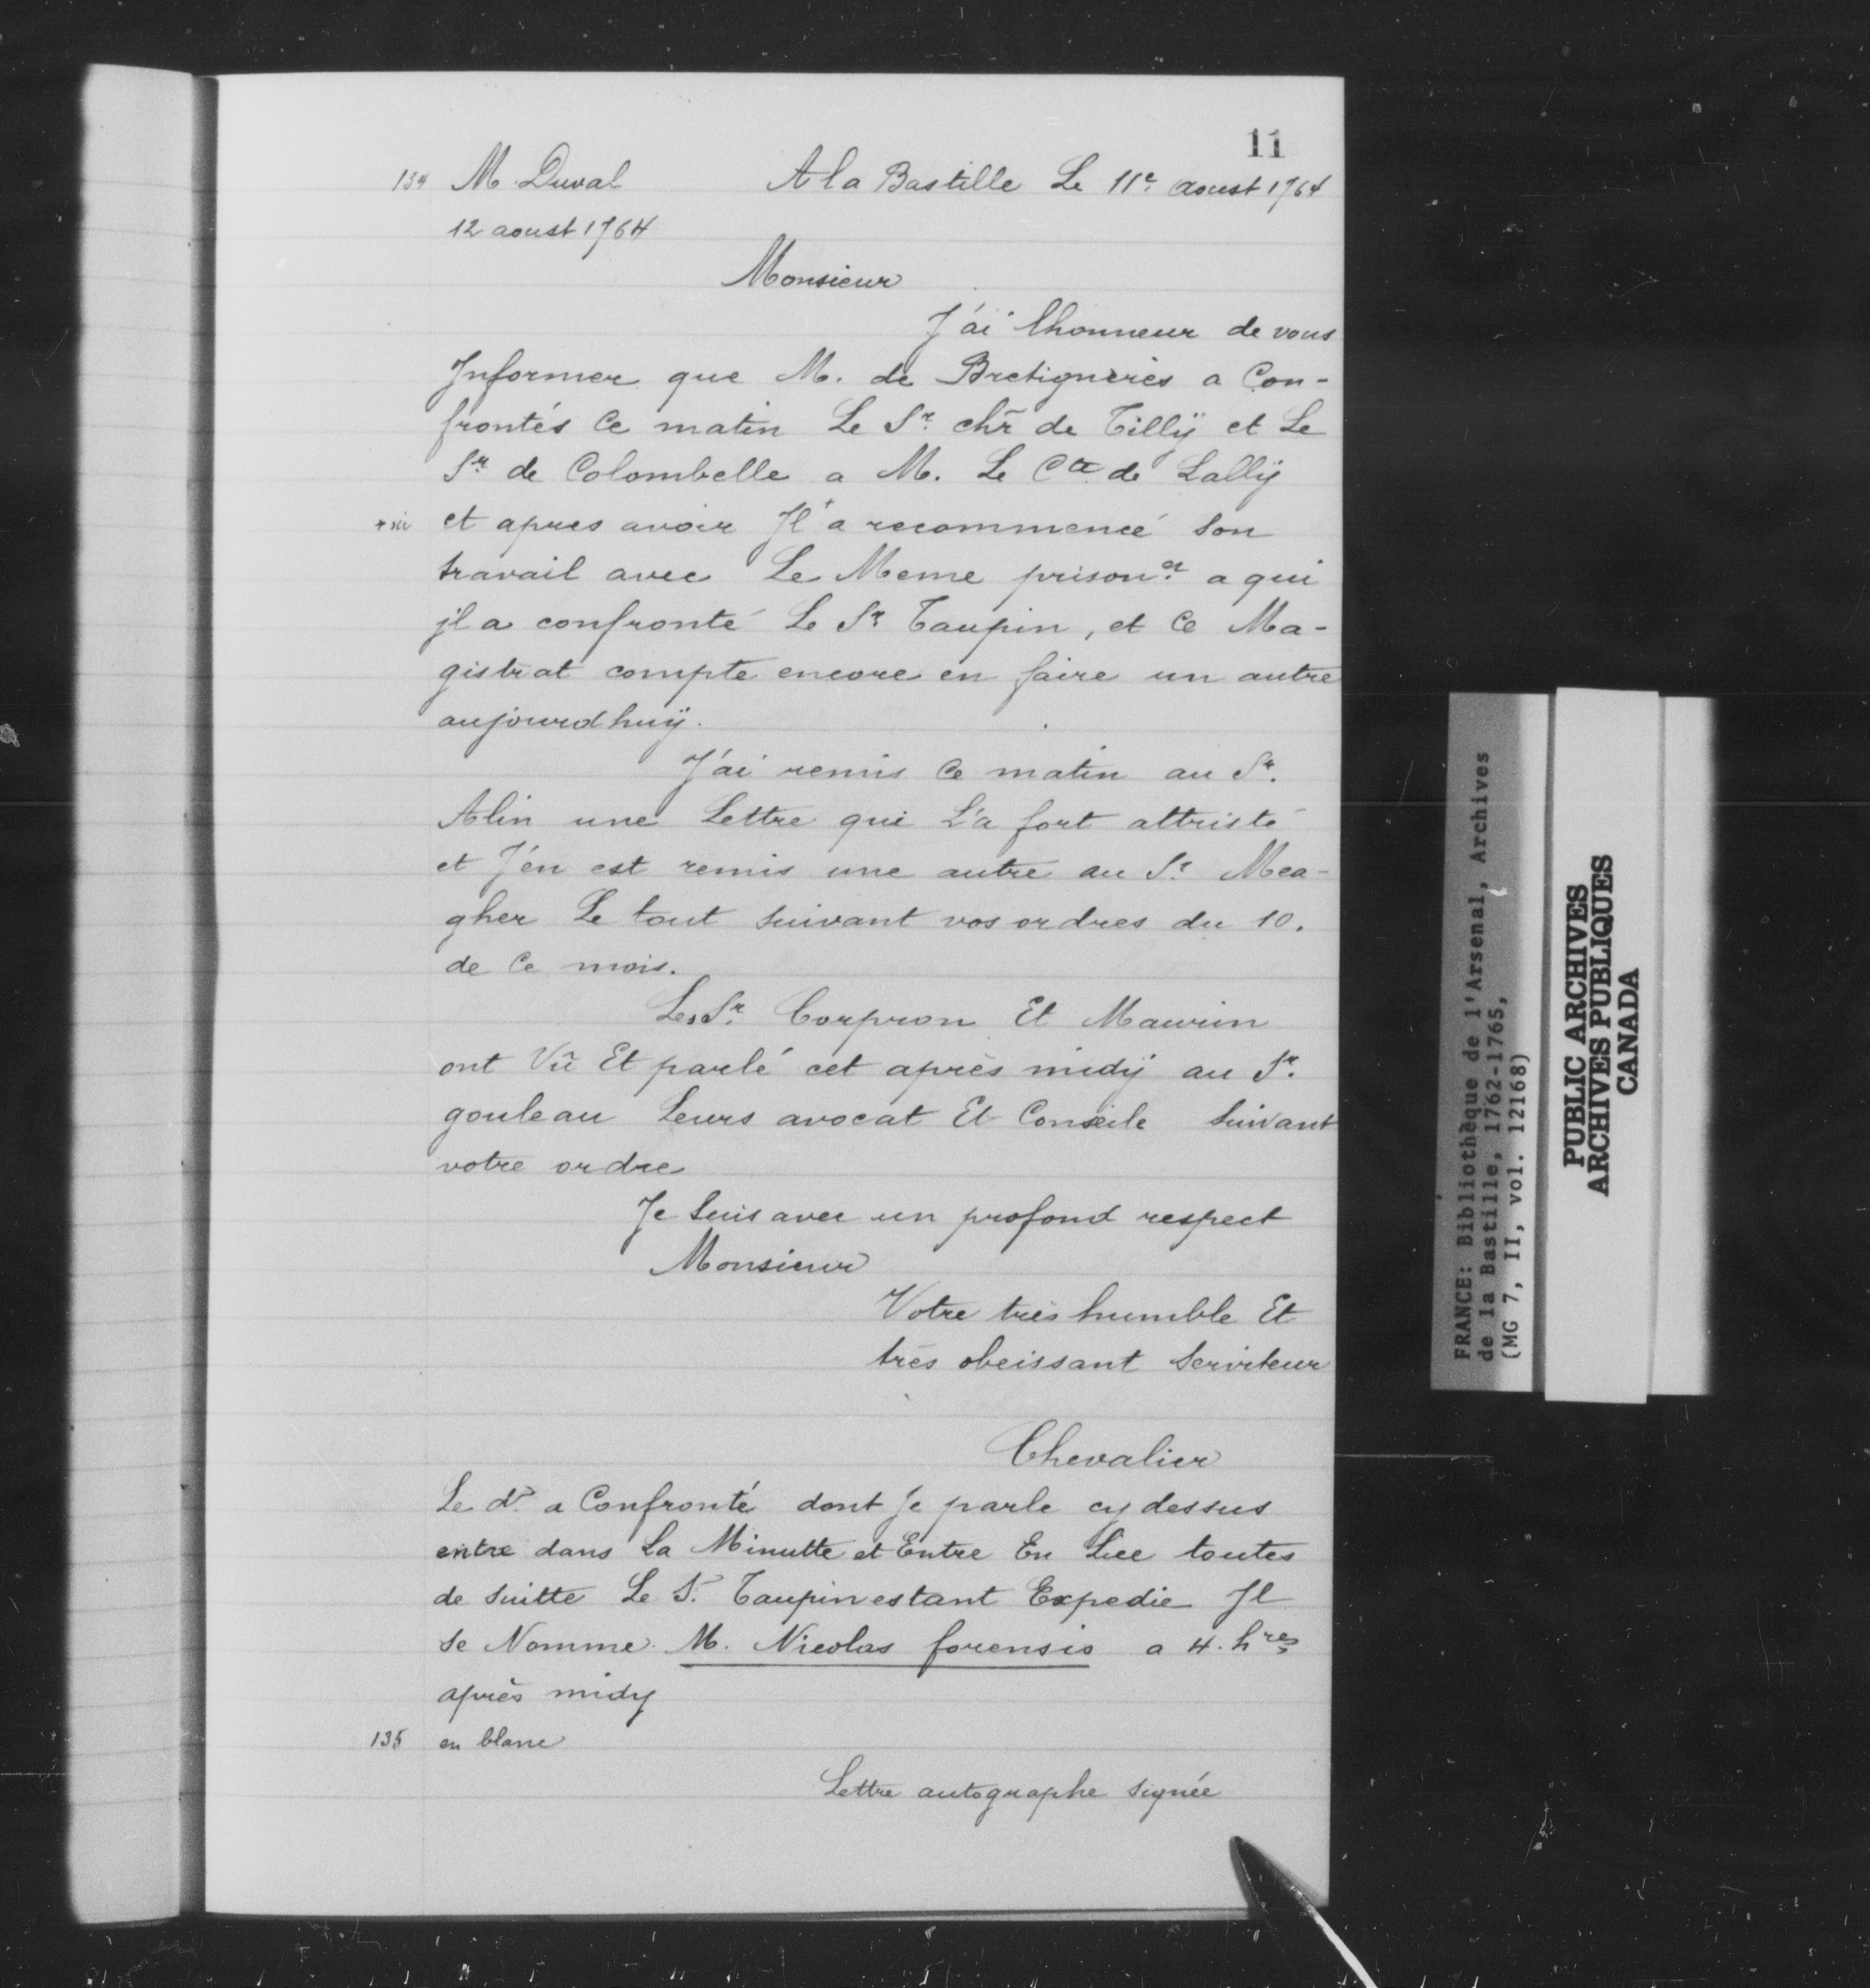 11
134 M. Duval A la Bastille Le 11e. aoust 1764
12 aoust 1764
Monsieur
J'ai l'honneur de vous
Informer que M. de Bretignerès a Con-
frontés Ce matin Le Sr. chr de Tillÿ et Le
Sr de Colombelle a M. Le Cte de Lallÿ
+ sic et apres avoir Jl + a recommencé Son
travail avec Le Meme prisoner. a qui
jl a confronté Le Sr Taupin, et Ce Ma-
gistrat compte encore en faire un autre
aujourdhuÿ.
J'ai remis Ce matin au Sr.
Alin une Lettre qui L'a fort attristé
et J'én est remis une autre au Sr Mea-
gher Le tout Suivant vos ordres du 10.
de Ce mois.
Les Sr. Corpron Et Maurin
ont Vû Et parlé cet après midÿ au Sr.
gouleau Leurs avocat Et Conseile Suivant
votre ordre
Je Suis avec un profond respect
Monsieur
Votre très humble Et
très obeissant Serviteur
Chevalier
Le dr. a Confronté dont Je parle cy dessus
entre dans La Minutte et Entre En Lice toutes
de Suitte Le S. Taupin estant Expedie Jl
Se Nomme M. Nicolas forensis a 4. hres
après midy
135 en blanc
Lettre autographe Signée
FRANCE: Bibliothèque de l'Arsenal, Archives
de la Bastille, 1762-1765,
(MG 7, II, vol. 12168)
PUBLIC ARCHIVES
ARCHIVES PUBLIQUES
CANADA